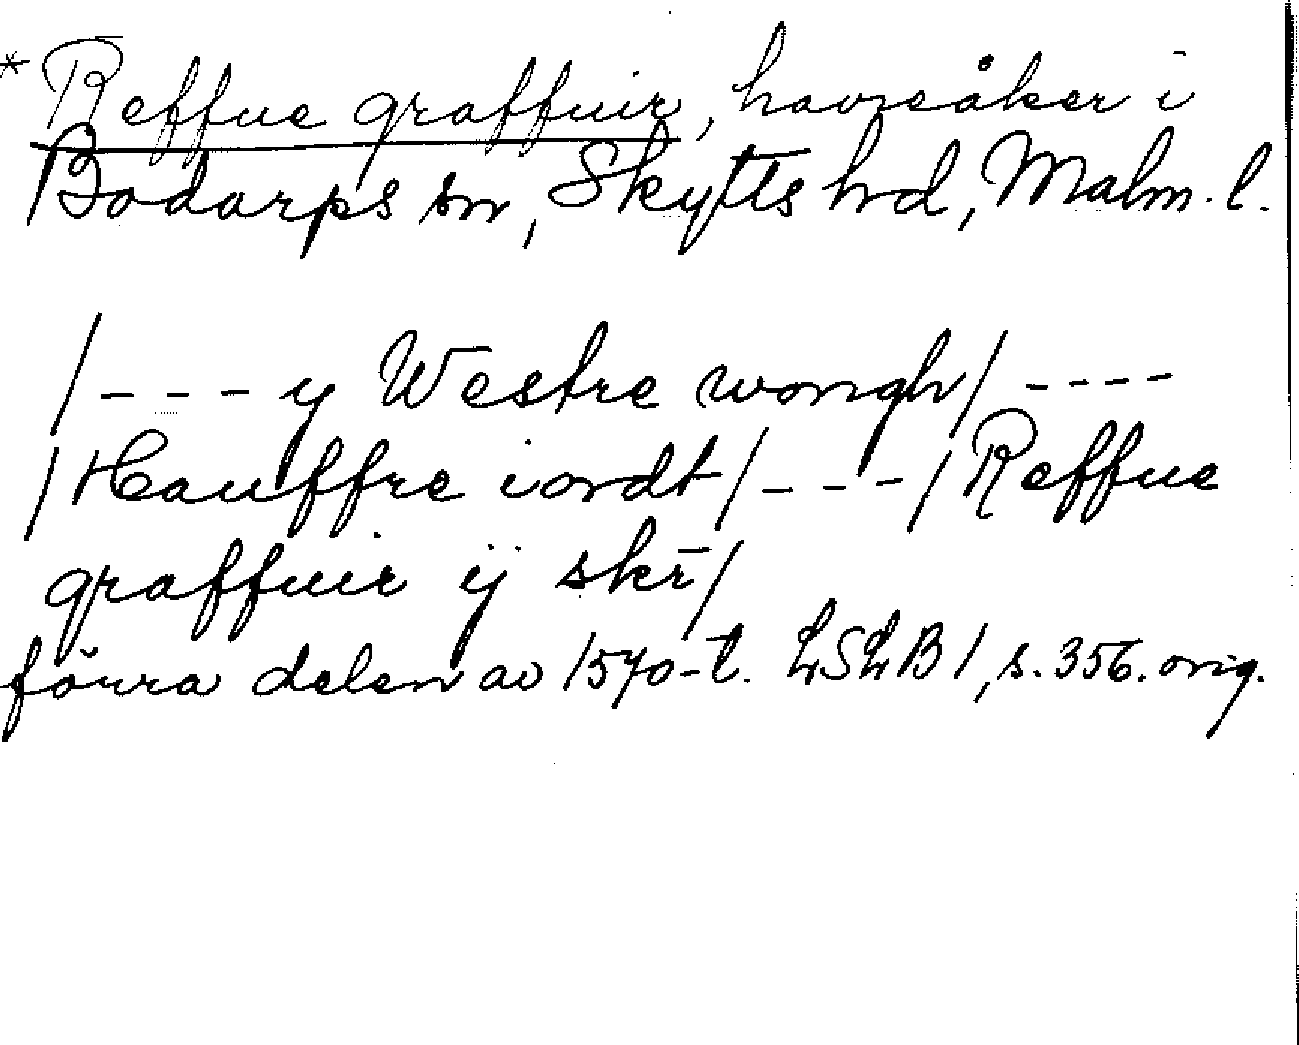 * Reffue graffuir, havreåker i
Bodarps sn, Skytts hd, Malm. l.
/ - - - y Westre wongh/ - - - -
/Hauffre iordt/ - - - / Reffue
graffuir ij skr̄/
förra delen av 1570-t. LSLB1, s. 356. orig.